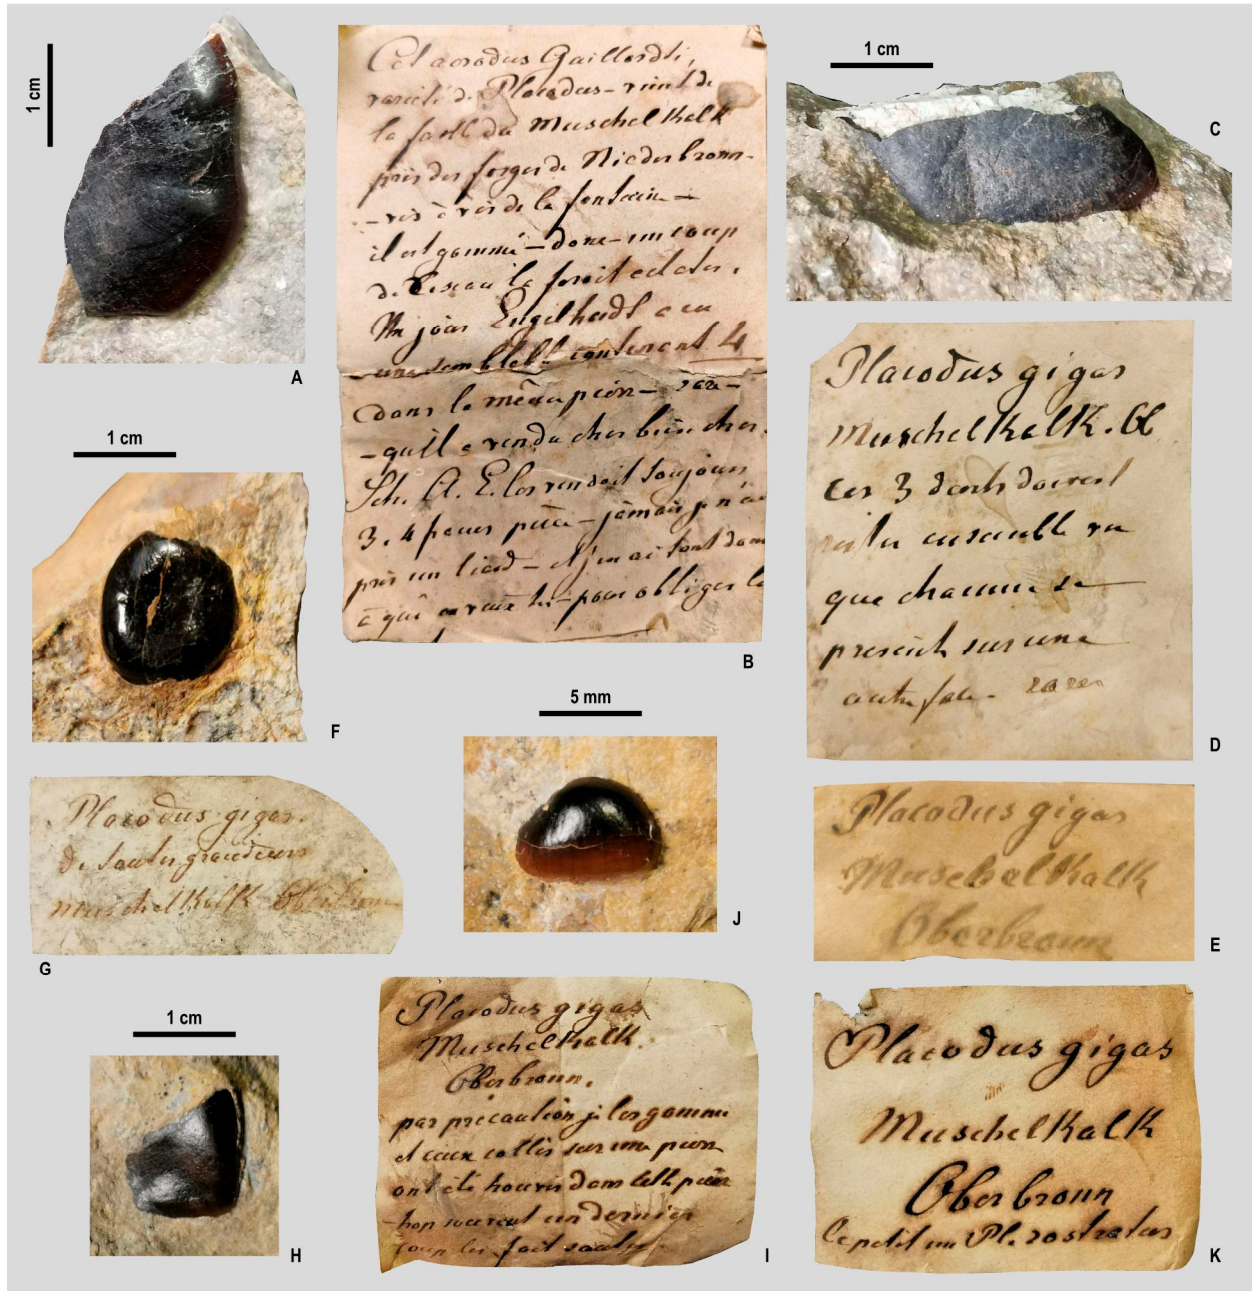 1 cm
A
Cet acrodus Gaillardti,
variété de Placodus - vient de
la forêt du Muschelkalk
près des forges de Niederbronn -
- vis à vis de la fontaine -
il est gommé - donc - un coup
de ciseau le feroit eclater.
Un jour Engelhardt a eu
une semblable contenant 4
dans le même pierre - rare -
- qu'il a vendu cher bien cher.
Sch. A. E. les vendoit toujours
3. 4 francs pièce - jamais je n'ai
pris un liard - et j'en ai tant donné
à qui en vouloit - pour obliger
B
1 cm
C
Placodus gigas
Muschelkalk. Ob
ces 3 dents doivent
rester ensemble vu
que chacune se
présente sur une
autre face - rares
D
1 cm
F
Placodus gigas
Muschelkalk
Oberbronn
E
Placodus gigas.
de toutes grandeurs
Muschelkalk Oberbronn
G
5 mm
J
1 cm
H
Placodus gigas
Muschelkalk.
Oberbronn.
par précaution je les gomme
et ceux collés sur une pierre
ont été trouvés dans cette pierre
trop souvent un dernier
coup les fait sauter.
I
Placodus gigas
Muschelkalk
Oberbronn
le petit un Pl. rostratus
K